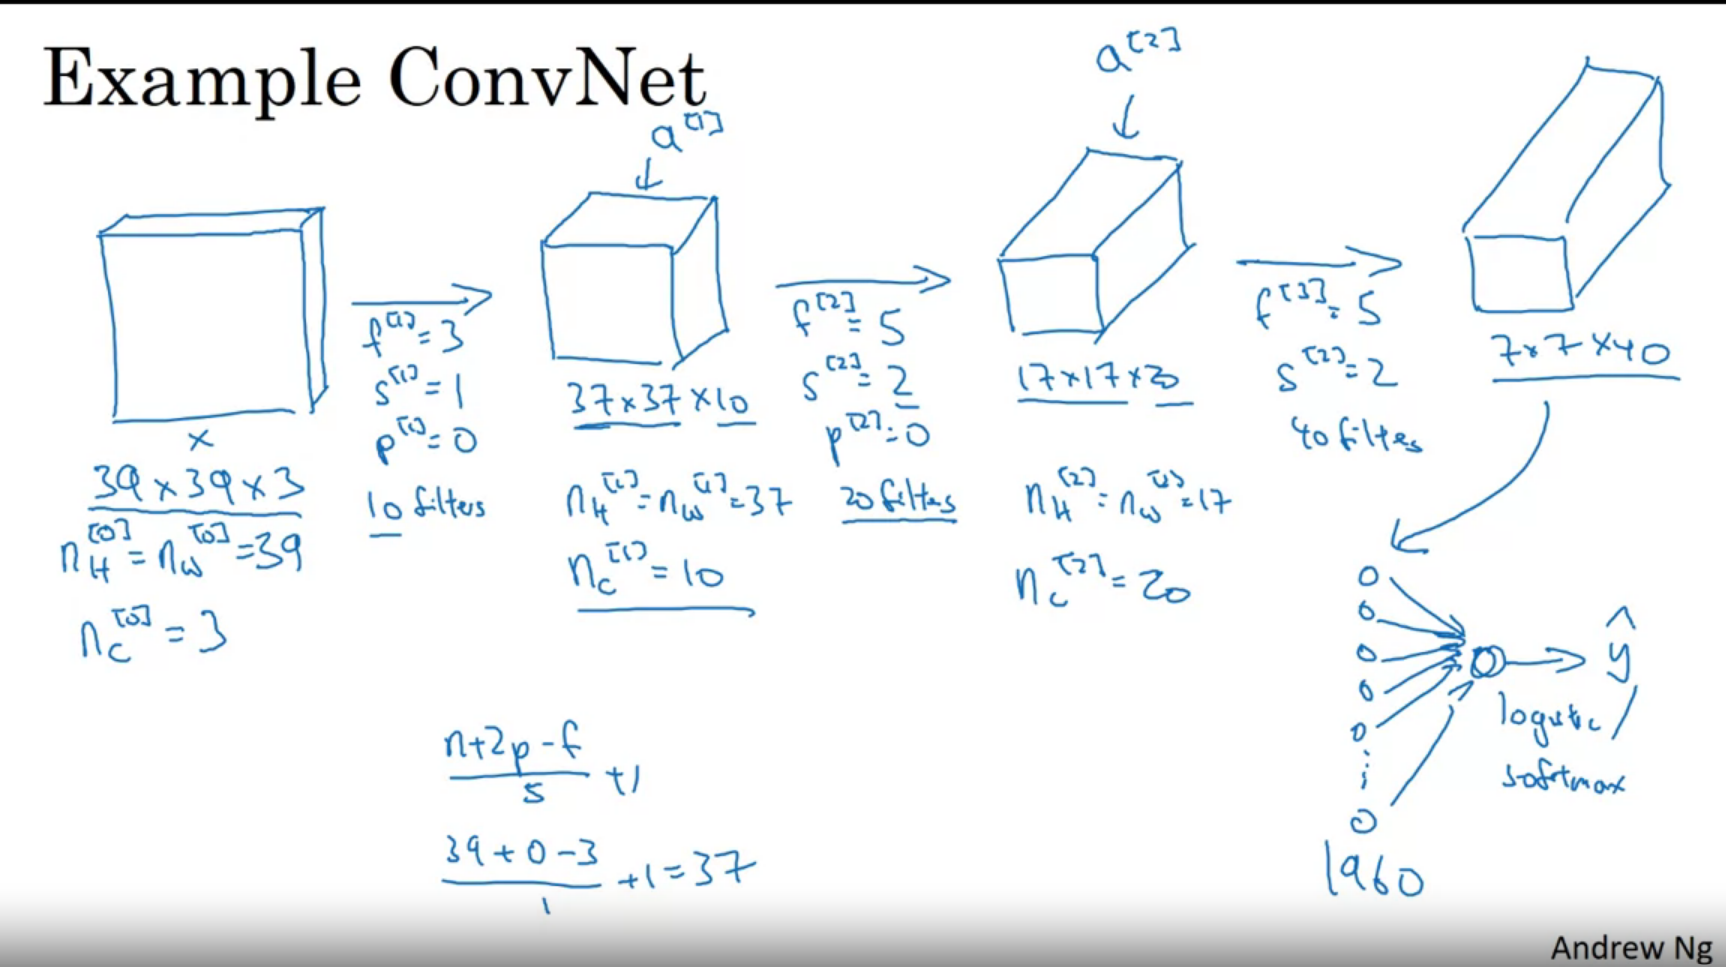 Example ConvNet
a^[1]
a^[2]
x
39 x 39 x 3
n_H^[0] = n_W^[0] = 39
n_C^[0] = 3
f^[1] = 3
s^[1] = 1
p^[1] = 0
10 filters
37 x 37 x 10
n_H^[1] = n_W^[1] = 37
n_C^[1] = 10
f^[2] = 5
s^[2] = 2
p^[2] = 0
20 filters
17 x 17 x 20
n_H^[2] = n_W^[2] = 17
n_C^[2] = 20
f^[3] = 5
s^[2] = 2
40 filters
7 x 7 x 40
ŷ
logistic /
softmax
1960
n+2p-f / s +1
39+0-3 / 1 +1 = 37
Andrew Ng